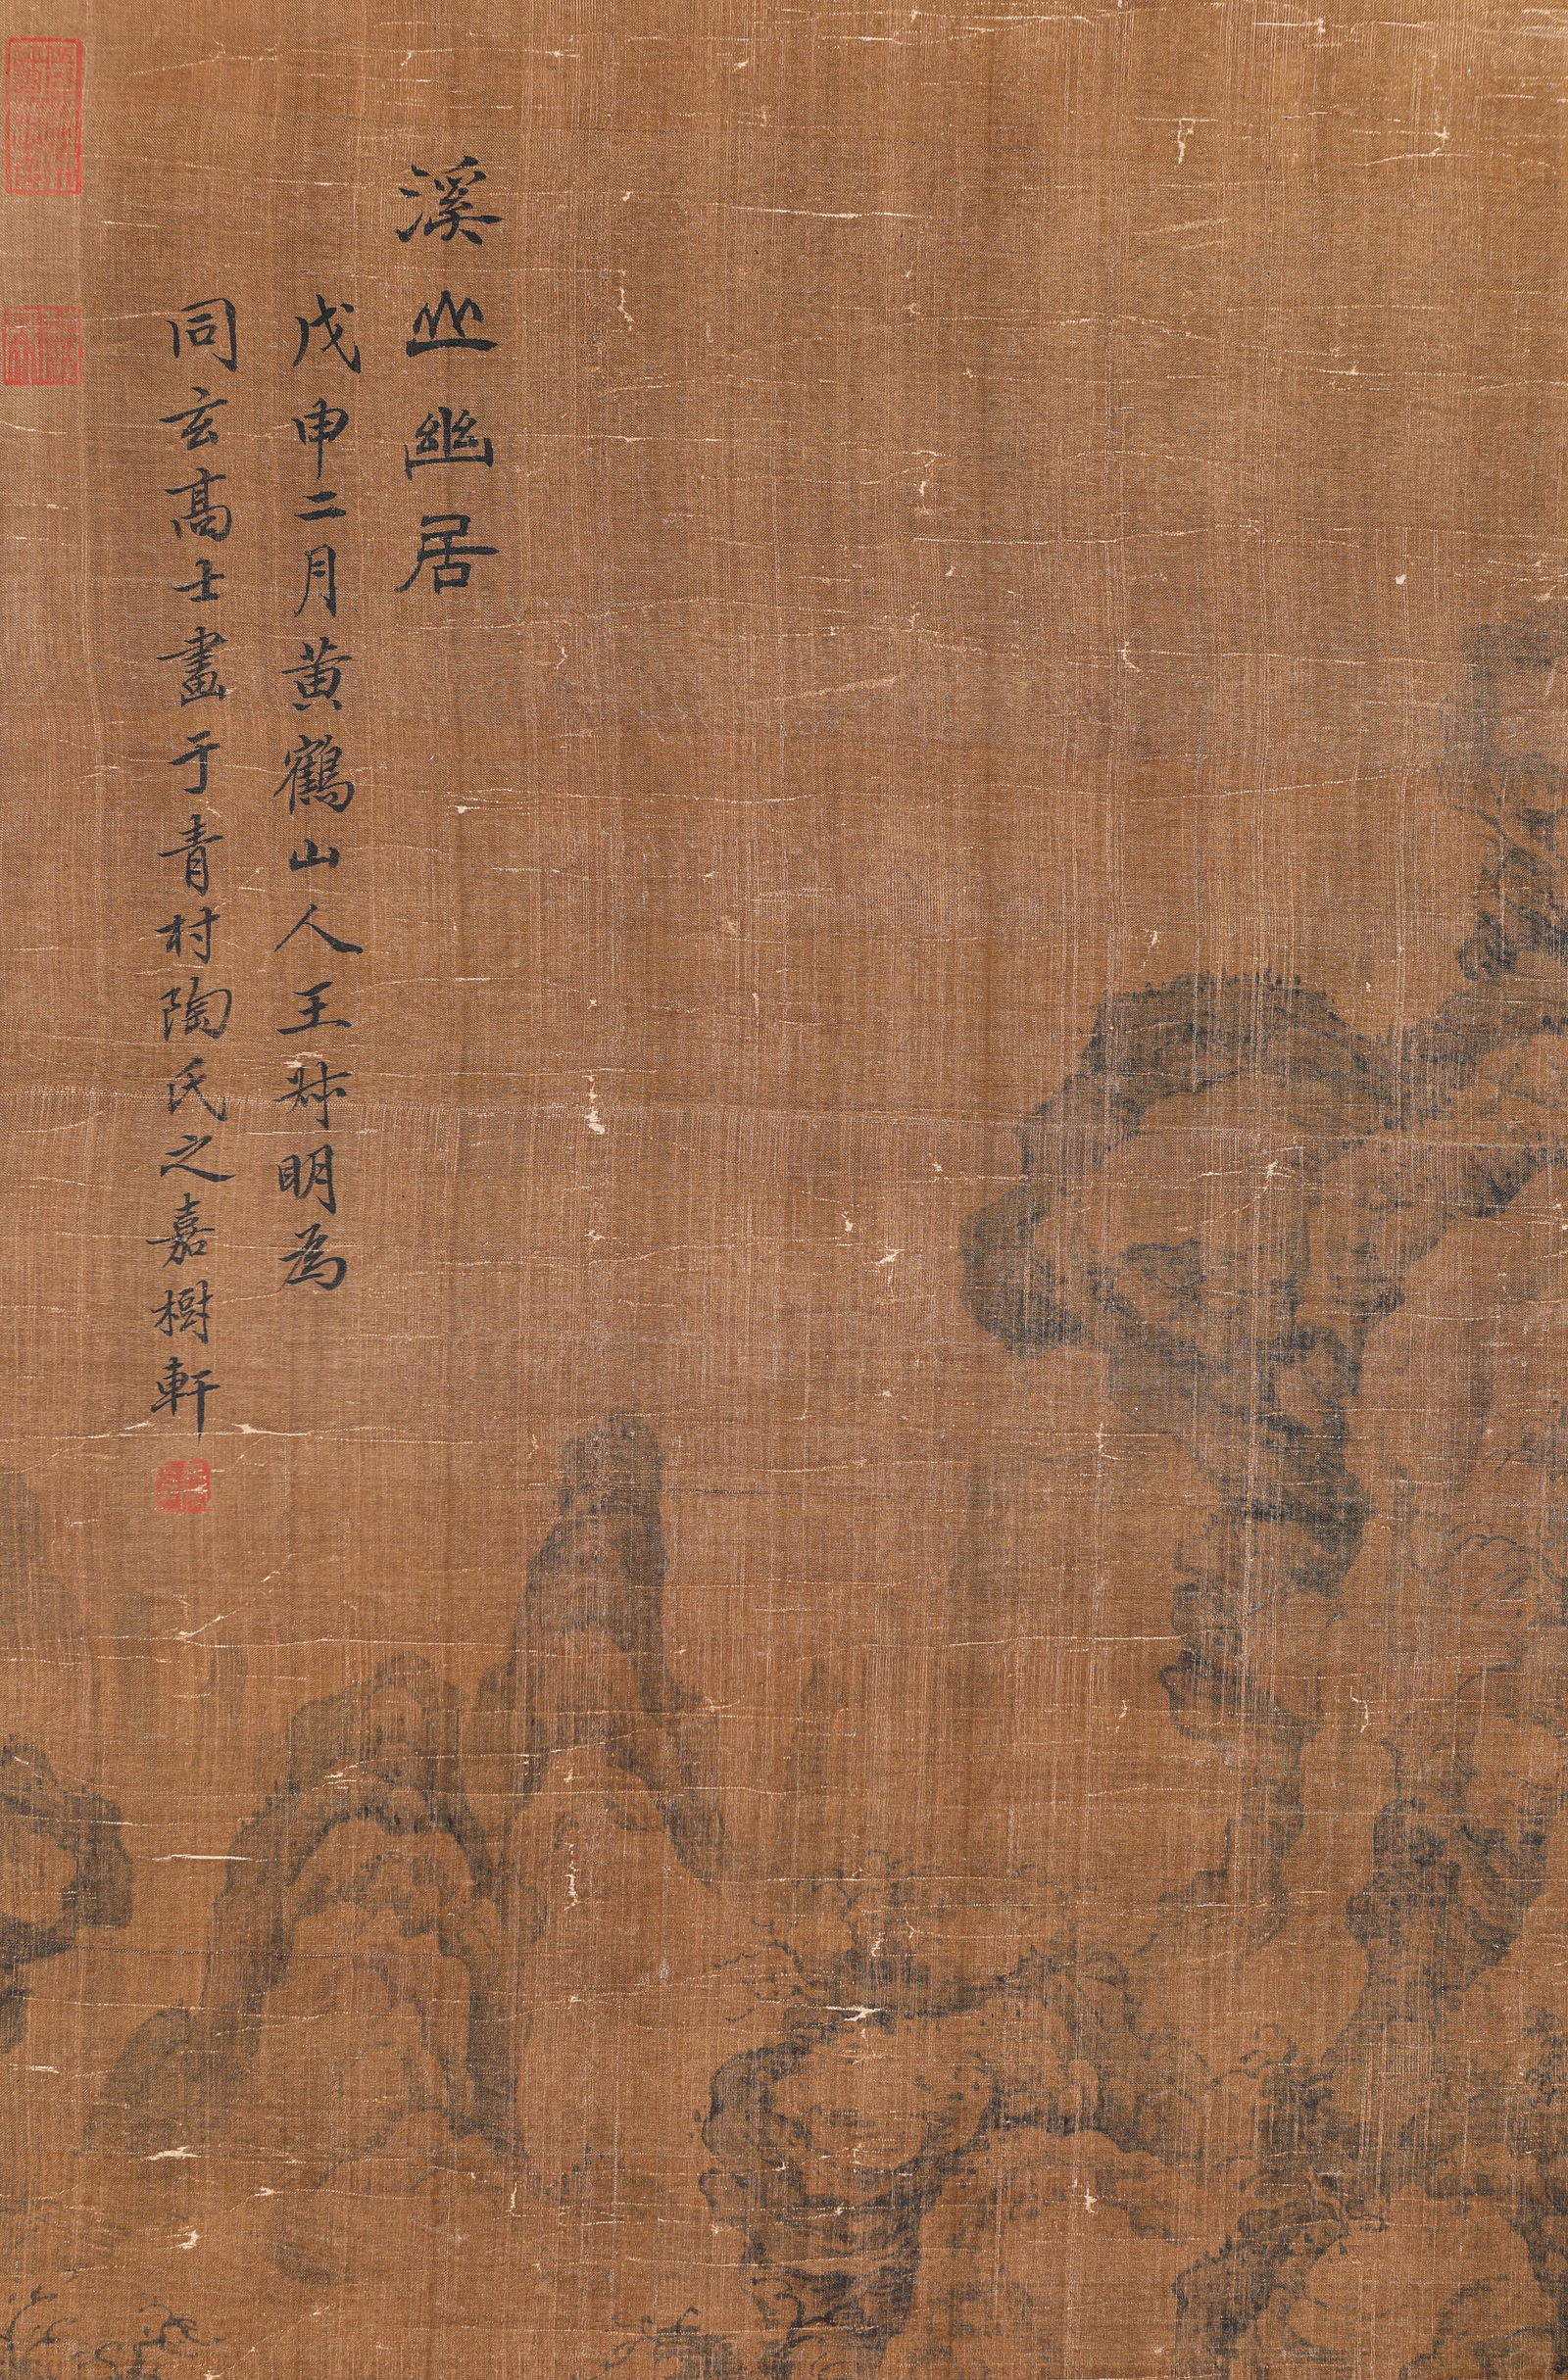 溪山幽居
戊申二月黄鶴山人王叔明為
同玄高士畫于青村陶氏之嘉樹軒